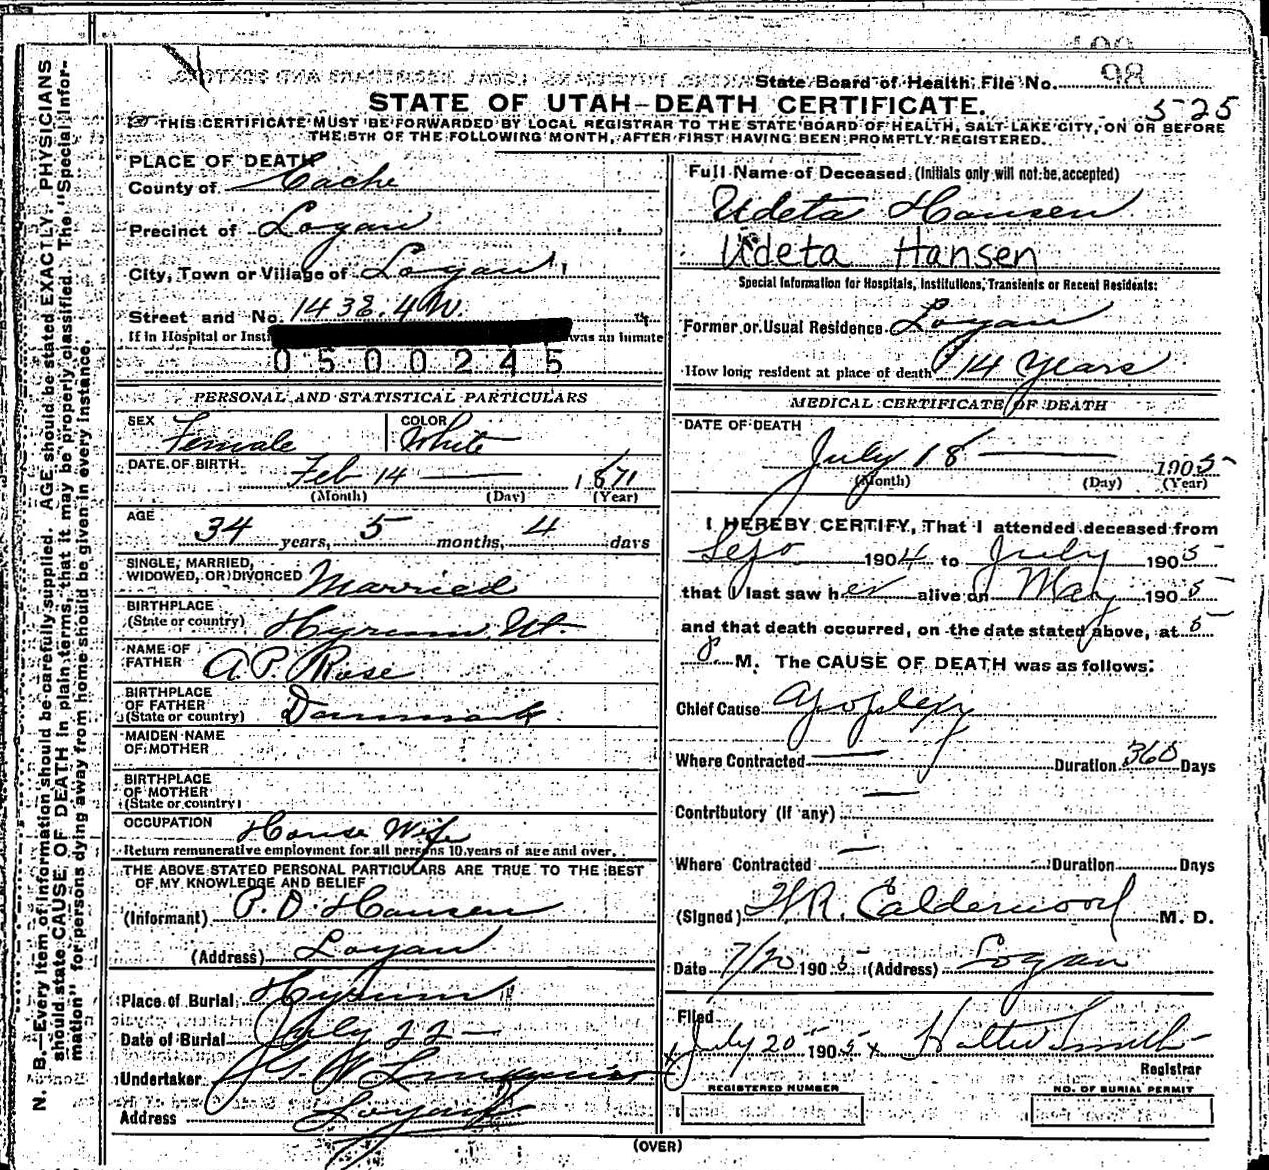 State Board of Health File No. 98
5-25
STATE OF UTAH—DEATH CERTIFICATE.
THIS CERTIFICATE MUST BE FORWARDED BY LOCAL REGISTRAR TO THE STATE BOARD OF HEALTH, SALT LAKE CITY, ON OR BEFORE
THE 5TH OF THE FOLLOWING MONTH, AFTER FIRST HAVING BEEN PROMPTLY REGISTERED.
N. B.—Every item of information should be carefully supplied. AGE should be stated EXACTLY. PHYSICIANS
should state CAUSE OF DEATH in plain terms, that it may be properly classified. The "Special Infor-
mation" for persons dying away from home should be given in every instance.
PLACE OF DEATH
County of Cache
Precinct of Logan
City, Town or Village of Logan
Street and No. 143 E. 4 N.
If in Hospital or Insti was an inmate
0500245
PERSONAL AND STATISTICAL PARTICULARS
SEX Female COLOR White
DATE OF BIRTH Feb 14 — 1871
(Month) (Day) (Year)
AGE 34 years, 5 months, 4 days
SINGLE, MARRIED,
WIDOWED, OR DIVORCED Married
BIRTHPLACE
(State or country) Hyrum Ut.
NAME OF
FATHER A. P. Rose
BIRTHPLACE
OF FATHER
(State or country) Danmark
MAIDEN NAME
OF MOTHER
BIRTHPLACE
OF MOTHER
(State or country)
OCCUPATION House Wife
Return remunerative employment for all persons 10 years of age and over.
THE ABOVE STATED PERSONAL PARTICULARS ARE TRUE TO THE BEST
OF MY KNOWLEDGE AND BELIEF
(Informant) P. D. Hansen
(Address) Logan
Place of Burial Hyrum
Date of Burial July 22 —
Undertaker G. W.
Address Logan
Full Name of Deceased (Initials only will not be accepted)
Udeta Hansen
Udeta Hansen
Special Information for Hospitals, Institutions, Transients or Recent Residents:
Former or Usual Residence Logan
How long resident at place of death 14 Years
MEDICAL CERTIFICATE OF DEATH
DATE OF DEATH
July 18 — 1905
(Month) (Day) (Year)
I HEREBY CERTIFY, That I attended deceased from
1904 to July 1905
that I last saw her alive on May 1905
and that death occurred, on the date stated above, at 5
P M. The CAUSE OF DEATH was as follows:
Chief Cause Apoplexy
Where Contracted — Duration 360 Days
Contributory (if any) —
Where Contracted — Duration Days
(Signed) W. R. Calderwood M. D.
Date 7/20 1905 (Address) Logan
Filed
x July 20 1905 x Walter Smith
Registrar
REGISTERED NUMBER NO. OF BURIAL PERMIT
(OVER)